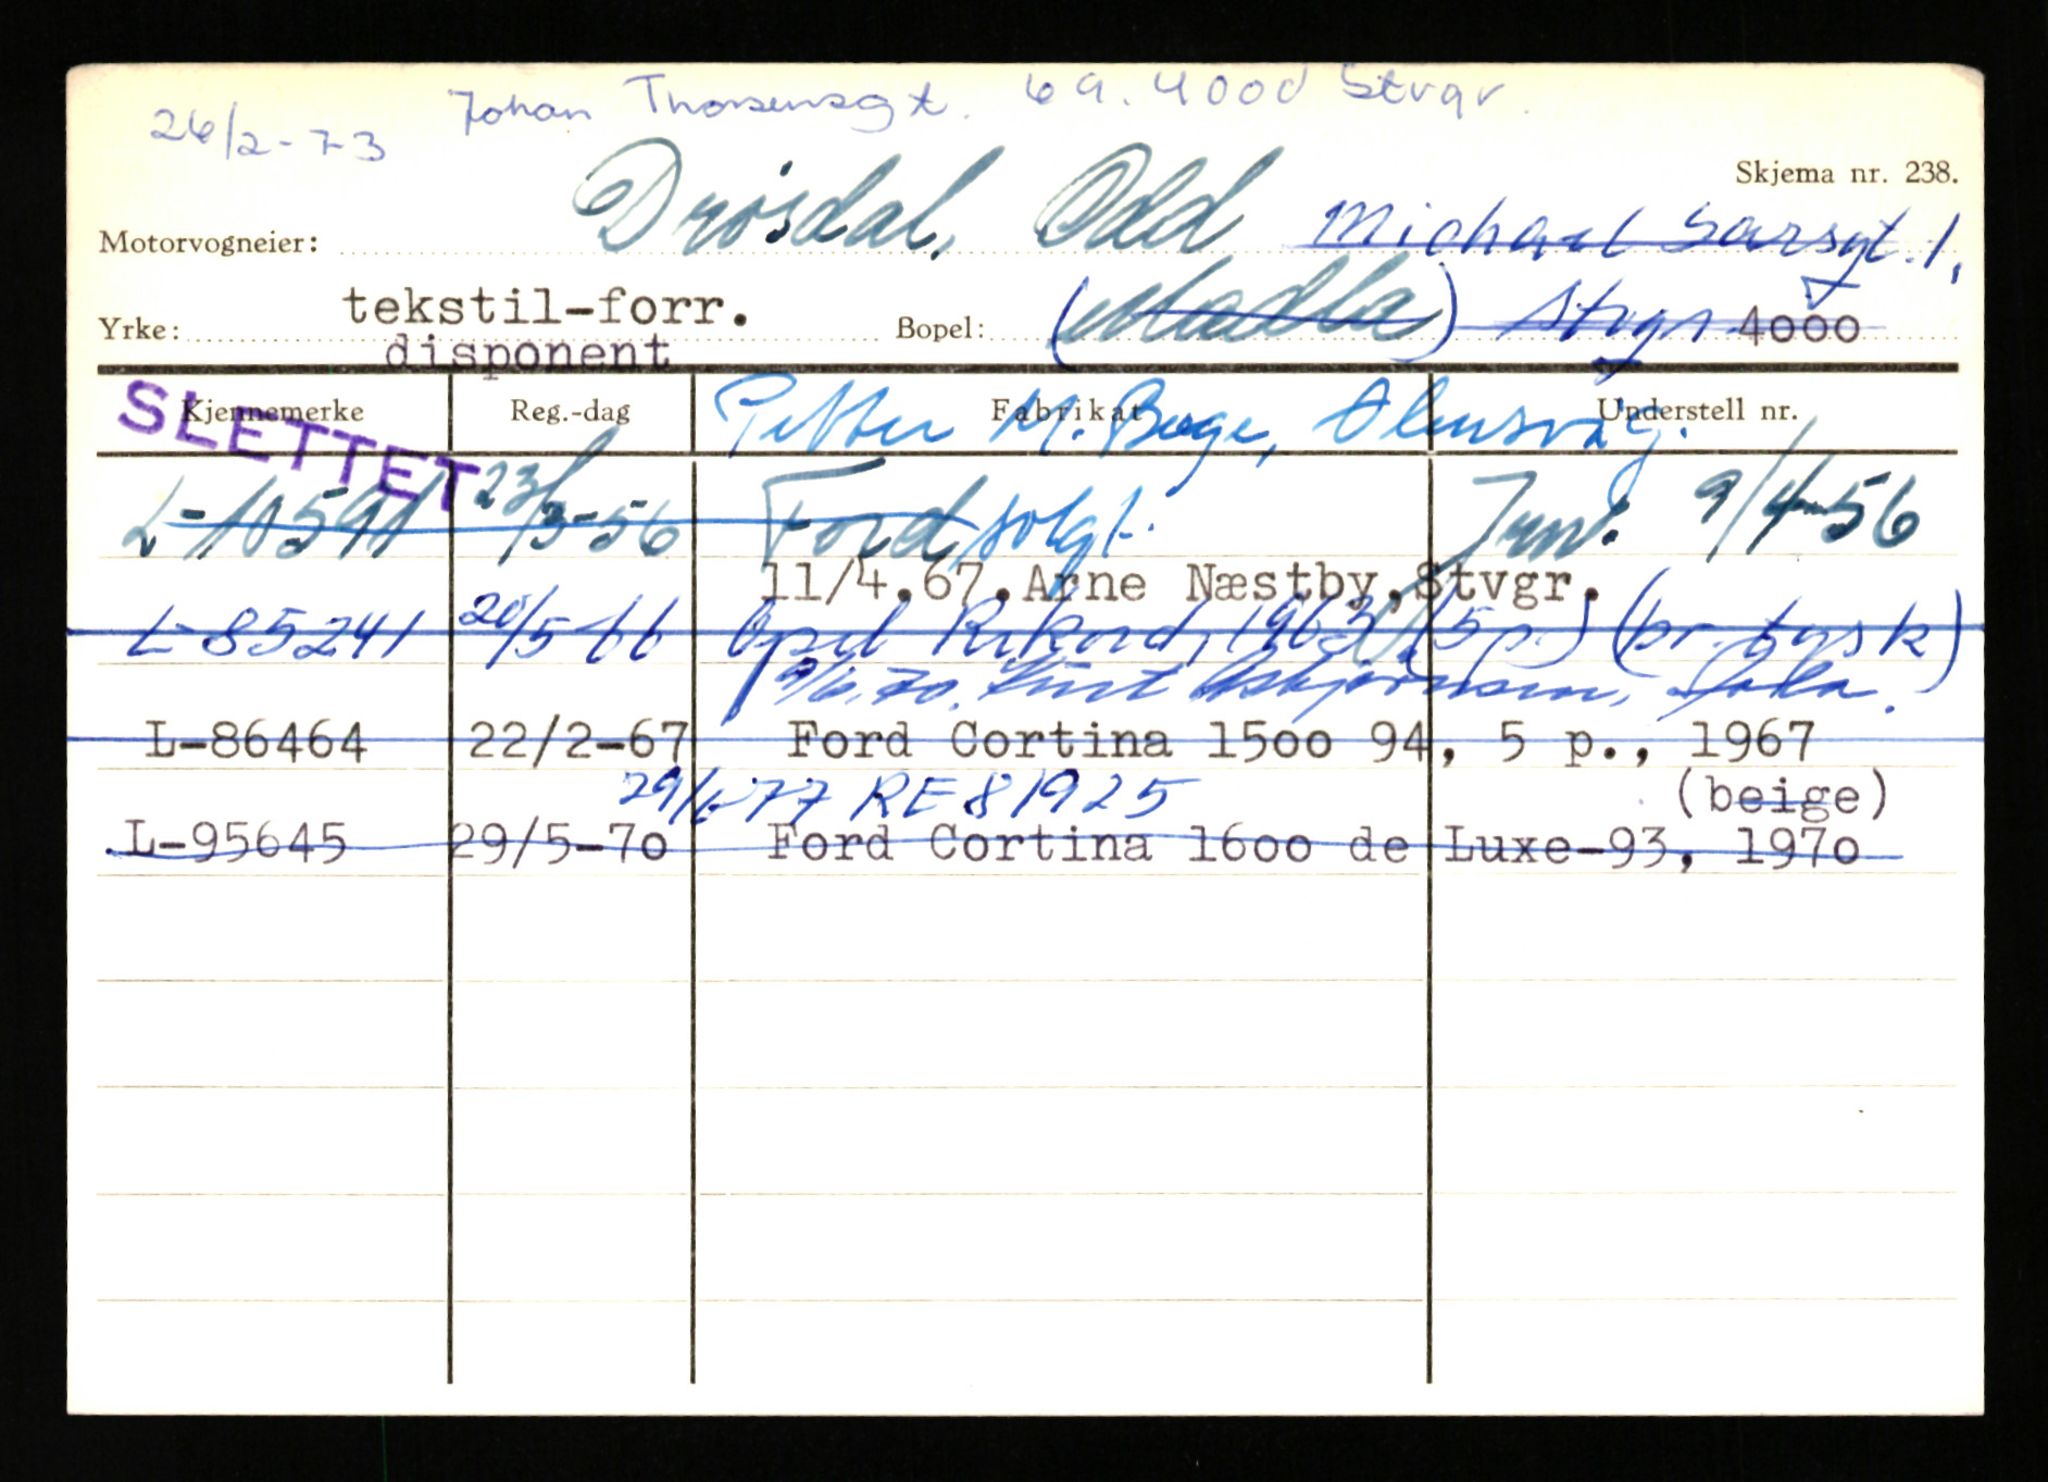 26/2-73 Johan Thorsensgt. 6 a. 4000 Stvgr.
Skjema nr. 238.
Motorvogneier: Drösdal, Odd Michael Sarsgt. 1,
Yrke: tekstil-forr. Bopel: (Madla) Stvgr 4000
disponent
Kjennemerke Reg.-dag Fabrikat Understell nr.
SLETTET
Petter M. Bøge, Ølensvåg.
L-10591 23/3-56 Ford solgt. 9/4-56
11/4.67.Arne Næstby,Stvgr.
L-85241 20/5-66 Opel Rekord, 1963 (5 p.) (br. tysk)
9/6.70.
L-86464 22/2-67 Ford Cortina 15oo 94, 5 p., 1967
29/6-77 RE 81925 (beige)
L-95645 29/5-7o Ford Cortina 16oo de Luxe-93, 197o